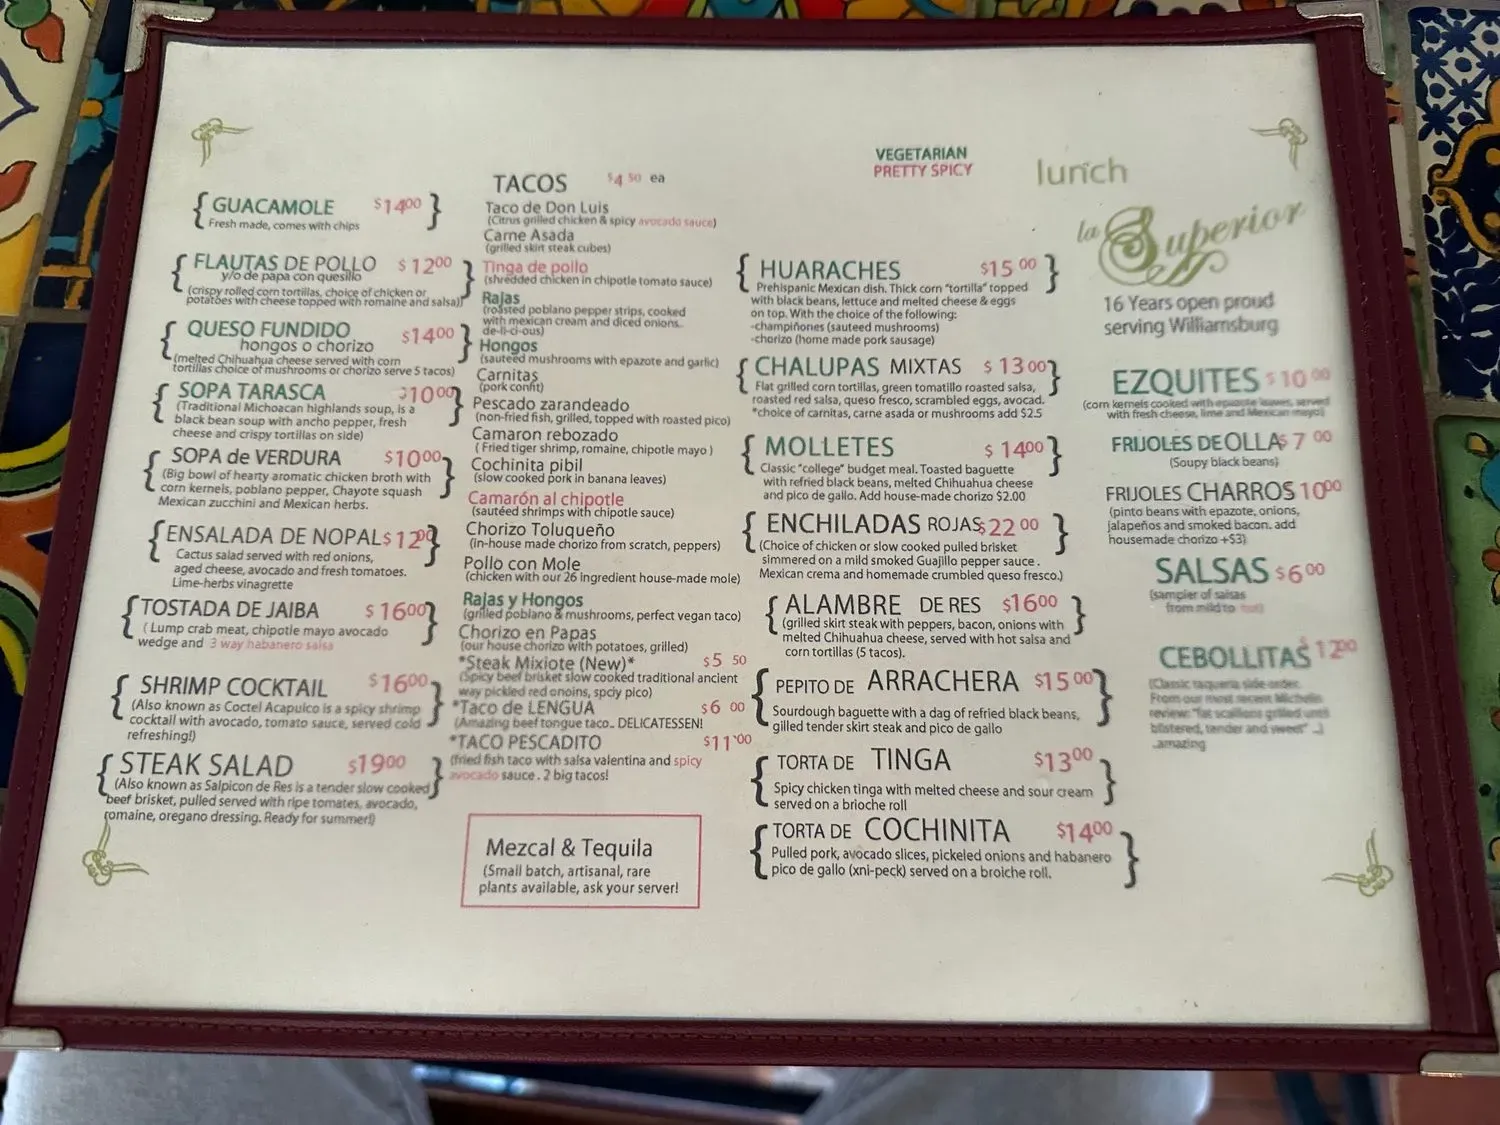 GUACAMOLE $14 00
Fresh made, comes with chips
FLAUTAS DE POLLO $ 12 00
y/o de papa con quesillo
(crispy rolled corn tortillas, choice of chicken or
potatoes with cheese topped with romaine and salsa)
QUESO FUNDIDO $14 00
hongos o chorizo
(melted Chihuahua cheese served with corn
tortillas choice of mushrooms or chorizo serve 5 tacos)
SOPA TARASCA $10 00
(Traditional Michoacan highlands soup, is a
black bean soup with ancho pepper, fresh
cheese and crispy tortillas on side)
SOPA de VERDURA $10 00
(Big bowl of hearty aromatic chicken broth with
corn kernels, poblano pepper, Chayote squash
Mexican zucchini and Mexican herbs.
ENSALADA DE NOPAL $ 12 00
Cactus salad served with red onions,
aged cheese, avocado and fresh tomatoes.
Lime-herbs vinagrette
TOSTADA DE JAIBA $ 16 00
( Lump crab meat, chipotle mayo avocado
wedge and 3 way habanero salsa
SHRIMP COCKTAIL $16 00
(Also known as Coctel Acapulco is a spicy shrimp
cocktail with avocado, tomato sauce, served cold
refreshing!)
STEAK SALAD $19 00
(Also known as Salpicon de Res is a tender slow cooked
beef brisket, pulled served with ripe tomates, avocado,
romaine, oregano dressing. Ready for summer!)
TACOS $4 50 ea
Taco de Don Luis
(Citrus grilled chicken & spicy avocado sauce)
Carne Asada
(grilled skirt steak cubes)
Tinga de pollo
(shredded chicken in chipotle tomato sauce)
Rajas
(roasted poblano pepper strips, cooked
with mexican cream and diced onions.
de-li-ci-ous)
Hongos
(sauteed mushrooms with epazote and garlic)
Carnitas
(pork confit)
Pescado zarandeado
(non-fried fish, grilled, topped with roasted pico)
Camaron rebozado
( Fried tiger shrimp, romaine, chipotle mayo )
Cochinita pibil
(slow cooked pork in banana leaves)
Camarón al chipotle
(sautéed shrimps with chipotle sauce)
Chorizo Toluqueño
(in-house made chorizo from scratch, peppers)
Pollo con Mole
(chicken with our 26 ingredient house-made mole)
Rajas y Hongos
(grilled poblano & mushrooms, perfect vegan taco)
Chorizo en Papas
(our house chorizo with potatoes, grilled)
*Steak Mixiote (New)* $5 50
(Spicy beef brisket slow cooked traditional ancient
way pickled red onoins, spciy pico)
*Taco de LENGUA $6 00
(Amazing beef tongue taco.. DELICATESSEN!
*TACO PESCADITO $11 00
(fried fish taco with salsa valentina and spicy
avocado sauce . 2 big tacos!
Mezcal & Tequila
(Small batch, artisanal, rare
plants available, ask your server!
VEGETARIAN
PRETTY SPICY
HUARACHES $15 00
Prehispanic Mexican dish. Thick corn "tortilla" topped
with black beans, lettuce and melted cheese & eggs
on top. With the choice of the following:
-champiñones (sauteed mushrooms)
-chorizo (home made pork sausage)
CHALUPAS MIXTAS $ 13 00
Flat grilled corn tortillas, green tomatillo roasted salsa,
roasted red salsa, queso fresco, scrambled eggs, avocad.
*choice of carnitas, carne asada or mushrooms add $2.5
MOLLETES $ 14 00
Classic "college" budget meal. Toasted baguette
with refried black beans, melted Chihuahua cheese
and pico de gallo. Add house-made chorizo $2.00
ENCHILADAS ROJAS $22 00
(Choice of chicken or slow cooked pulled brisket
simmered on a mild smoked Guajillo pepper sauce .
Mexican crema and homemade crumbled queso fresco.)
ALAMBRE DE RES $16 00
(grilled skirt steak with peppers, bacon, onions with
melted Chihuahua cheese, served with hot salsa and
corn tortillas (5 tacos).
PEPITO DE ARRACHERA $15 00
Sourdough baguette with a dag of refried black beans,
gilled tender skirt steak and pico de gallo
TORTA DE TINGA $13 00
Spicy chicken tinga with melted cheese and sour cream
served on a brioche roll
TORTA DE COCHINITA $14 00
Pulled pork, avocado slices, pickeled onions and habanero
pico de gallo (xni-peck) served on a broiche roll.
lunch
la Superior
16 Years open proud
serving Williamsburg
EZQUITES $ 10 00
(corn kernels cooked with epazote leaves, served
with fresh cheese, lime and Mexican mayo)
FRIJOLES DE OLLA $ 7 00
(Soupy black beans)
FRIJOLES CHARROS 10 00
(pinto beans with epazote, onions,
jalapeños and smoked bacon. add
housemade chorizo +$3)
SALSAS $6 00
(sampler of salsas
from mild to hot)
CEBOLLITAS $ 12 00
(Classic taqueria side order.
From our most recent Michelin
review: "fat scallions grilled until
blistered, tender and sweet" ...)
..amazing